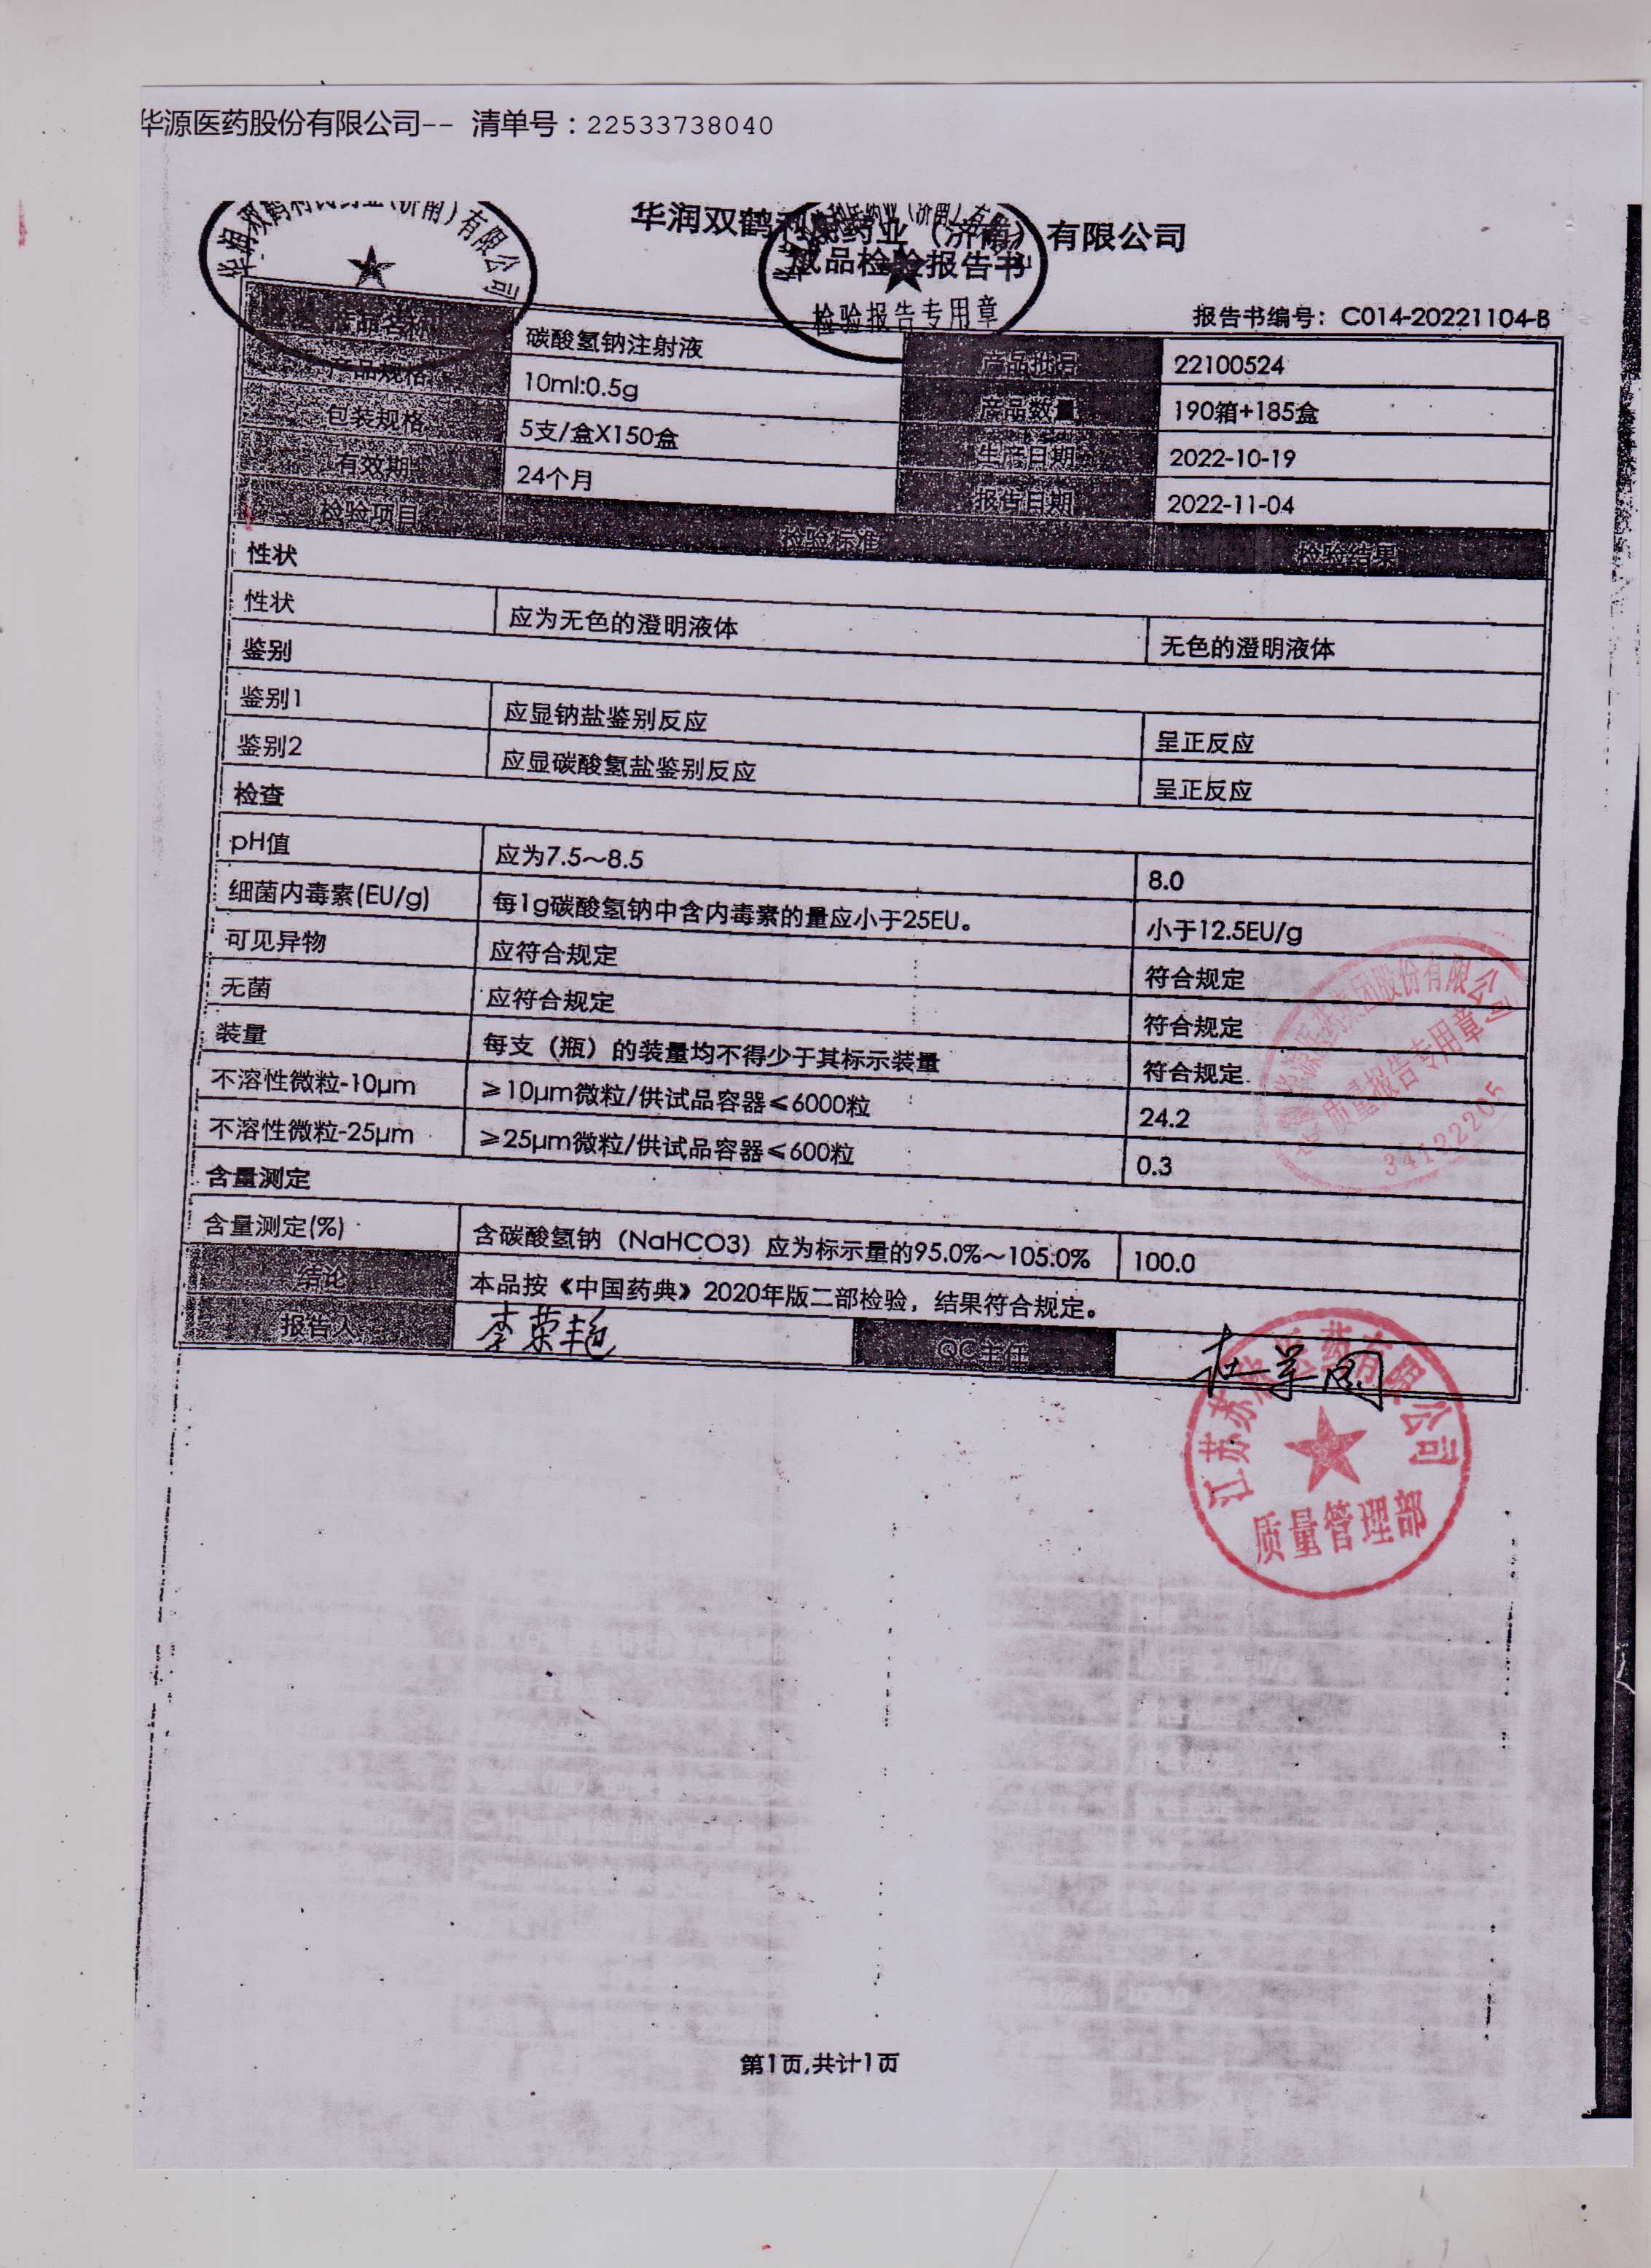 华源医药股份有限公司-- 清单号：22533738040
华润双鹤利民药业（济南）有限公司
成品检验报告书
检验报告专用章
报告书编号：C014-20221104-B
产品名称 碳酸氢钠注射液 产品批号 22100524
产品规格 10ml:0.5g 产品数量 190箱+185盒
包装规格 5支/盒X150盒 生产日期 2022-10-19
有效期 24个月 报告日期 2022-11-04
检验项目 检验标准 检验结果
性状
性状 应为无色的澄明液体 无色的澄明液体
鉴别
鉴别1 应显钠盐鉴别反应 呈正反应
鉴别2 应显碳酸氢盐鉴别反应 呈正反应
检查
pH值 应为7.5～8.5 8.0
细菌内毒素(EU/g) 每1g碳酸氢钠中含内毒素的量应小于25EU。 小于12.5EU/g
可见异物 应符合规定 符合规定
无菌 应符合规定 符合规定
装量 每支（瓶）的装量均不得少于其标示装量 符合规定
不溶性微粒-10μm ≥10μm微粒/供试品容器≤6000粒 24.2
不溶性微粒-25μm ≥25μm微粒/供试品容器≤600粒 0.3
含量测定
含量测定(%) 含碳酸氢钠（NaHCO3）应为标示量的95.0%～105.0% 100.0
结论 本品按《中国药典》2020年版二部检验，结果符合规定。
报告人 李荣艳 QC主任
华润双鹤利民药业（济南）有限公司
质量报告专用章
质量管理部
第1页,共计1页